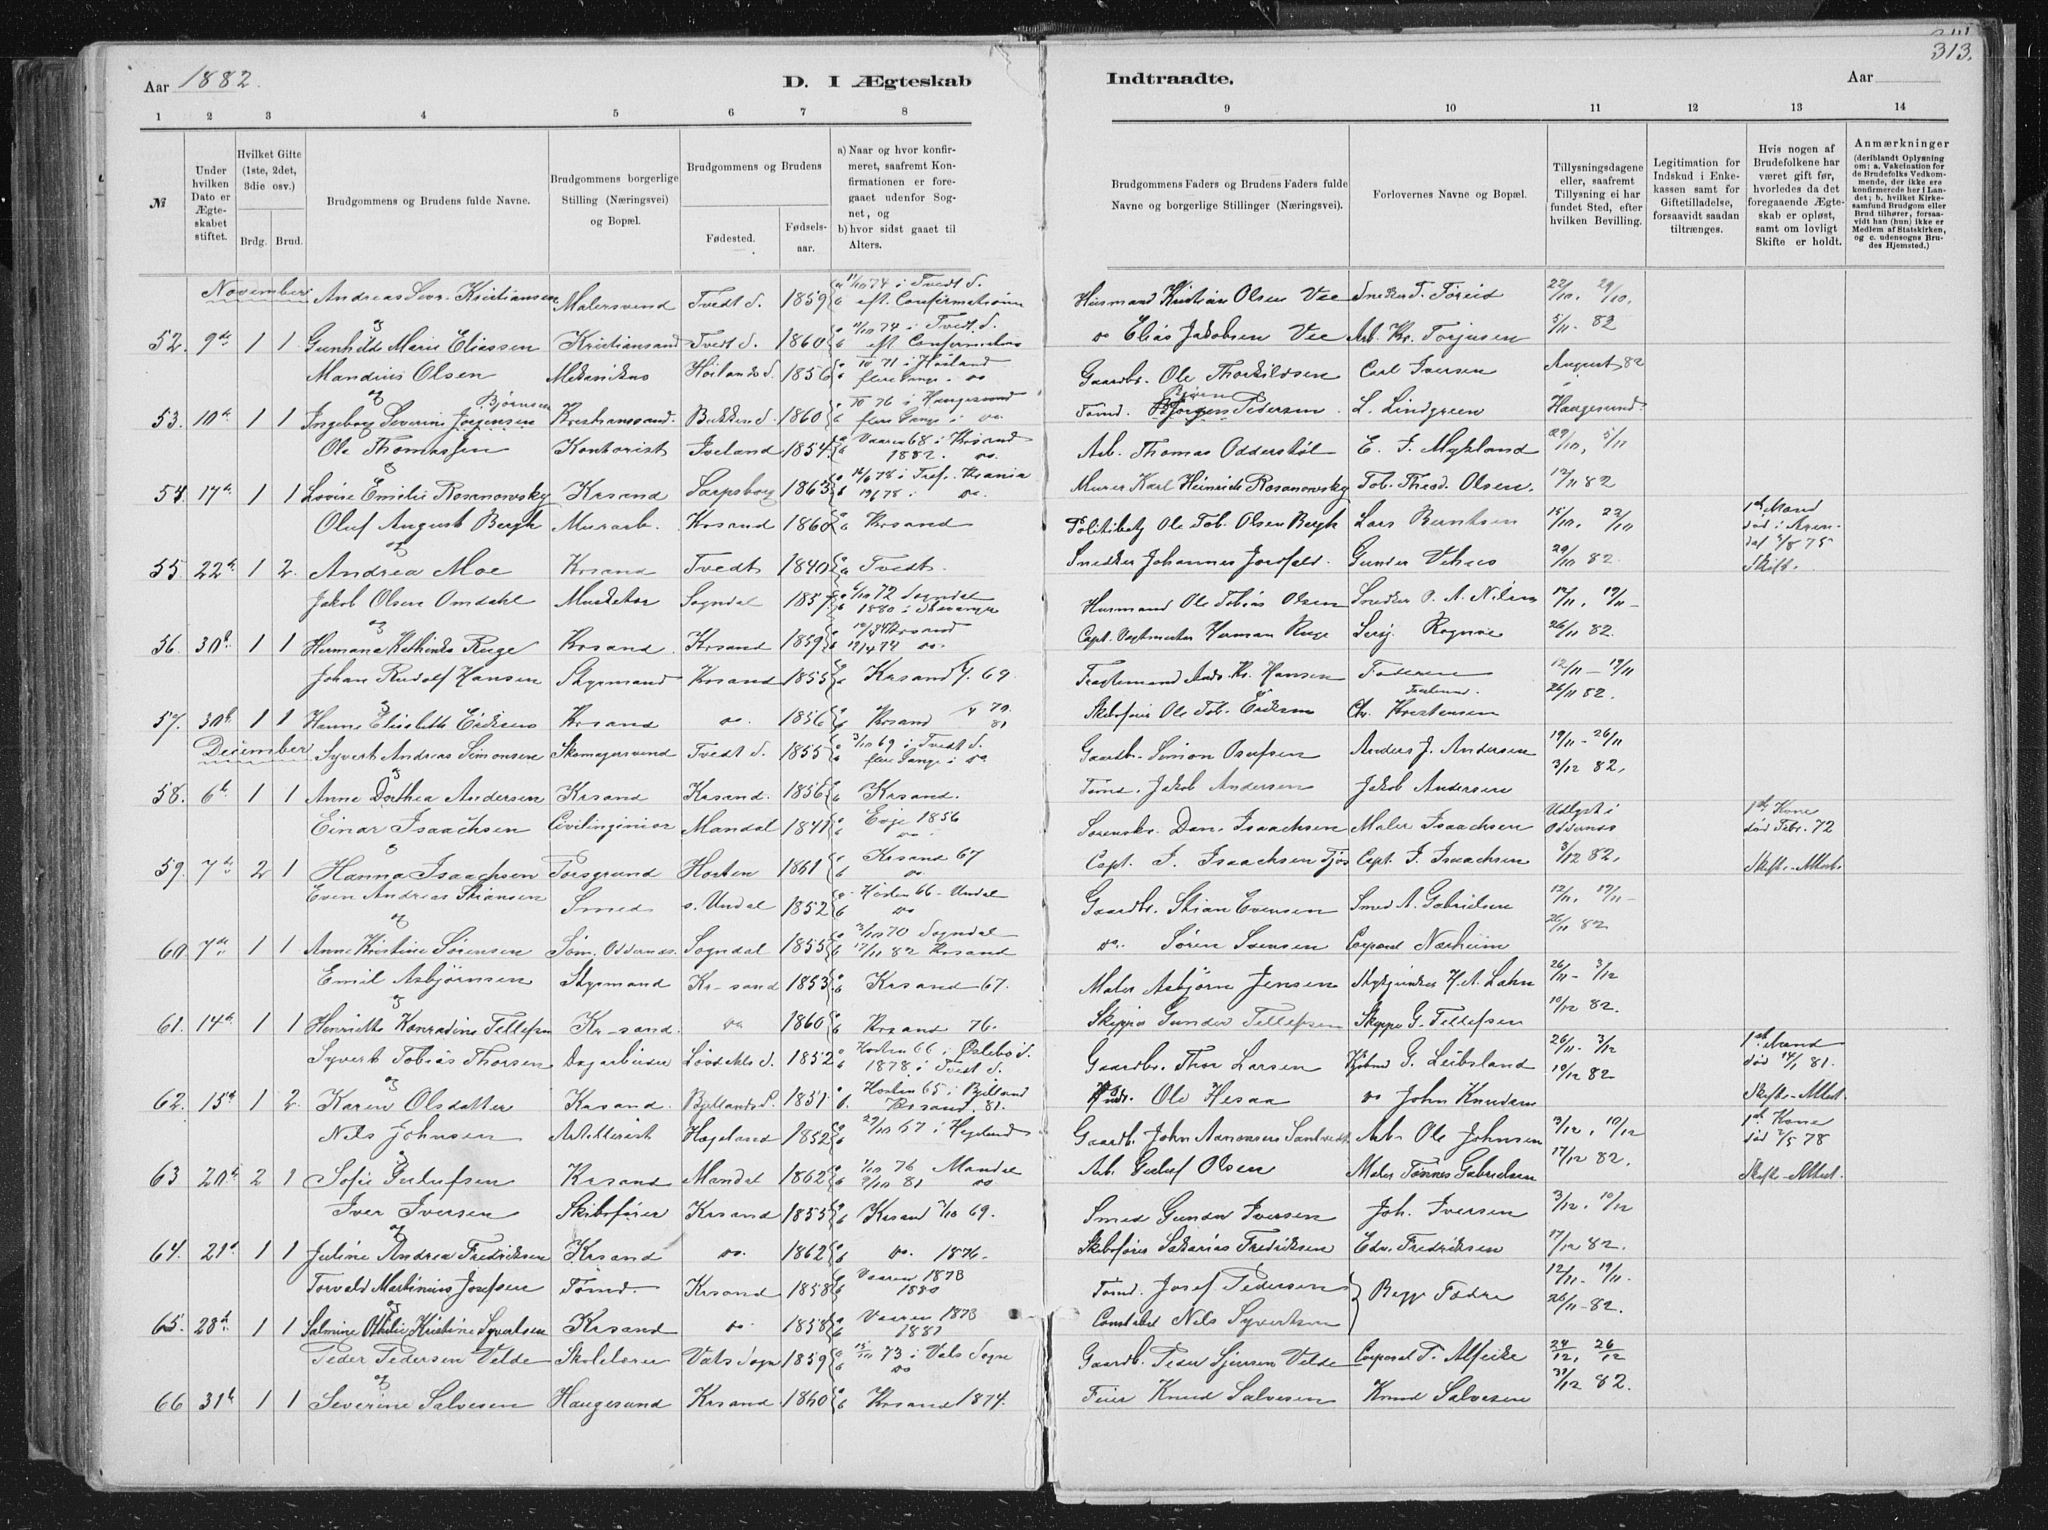 313.
Aar 1882.
D. I Ægteskab Indtraadte.
Aar
1 2 3 4 5 6 7 8 9 10 11 12 13 14
№
Under hvilken Dato er Ægteskabet stiftet.
Hvilket Gifte (1ste, 2det, 3die osv.)
Brdg. Brud.
Brudgommens og Brudens fulde Navne.
Brudgommens borgerlige Stilling (Næringsvei) og Bopæl.
Brudgommens og Brudens
Fødested. Fødselsaar.
a) Naar og hvor konfirmeret, saafremt Konfirmationen er foregaaet udenfor Sognet, og
b) hvor sidst gaaet til Alters.
Brudgommens Faders og Brudens Faders fulde Navne og borgerlige Stillinger (Næringsvei).
Forlovernes Navne og Bopæl.
Tillysningsdagene eller, saafremt Tillysning ei har fundet Sted, efter hvilken Bevilling.
Legitimation for Indskud i Enkekassen samt for Giftetilladelse, forsaavidt saadan tiltrænges.
Hvis nogen af Brudefolkene har været gift før, hvorledes da det foregaaende Ægteskab er opløst, samt om lovligt Skifte er holdt.
Anmærkninger (deriblandt Oplysning om: a. Vakcination for de Brudefolks Vedkommende, der ikke ere konfirmerede her i Landet; b. hvilket Kirkesamfund Brudgom eller Brud tilhører, forsaavidt han (hun) ikke er Medlem af Statskirken, og c. udensogns Brudes Hjemsted.)
November Andreas Sevr. Kristiansen Malersvend Tvedt S. 1859 i Tvedt S. eft. Confirmationen Husmand Kristian Olsen Vee 22/10, 29/10,
og
52. 9de 1 1 Gunhilde Marie Eliassen Kristiansand Tvedt S. 1860 74 i Tvedt S. eft. Confirmation do Elias Jakobsen Vee Arb. Kr. Torjusen 5/11 - 82
Mandius Olsen Mekanikus Høilands S. 1856 71 i Høiland flere Gange do Gaardbr. Ole Thorkildsen Carl Iversen August 82 i
og Bjørnsen
53. 10de 1 1 Ingeborg Severine Jørgensen Kristianssand Bakke S. 1860 76 i Haugesund flere Gange i do. Tømd. Bjørn Pedersen L. Lindgreen Haugesund.
Ole Thomassen Kontorist Iveland 1854 Vaaren 68 i Krsand 1882. do. Arb. Thomas Odderstøl E. J. Mykland 29/10, 5/11
og
54. 17de 1 1 Lovise Emilie Rosanowsky Krsand Sarpsborg 1863 78 i Tref. Krania do. Murer Karl Heinrich Rosanowsky Tob. Theod. Olsen. 12/11 82
Oluf August Bergh Murarb. Krsand 1860 Krsand Politibetj. Ole Tob. Olsen Bergh Lars Berntsen 15/10, 22/10 1ste Mand død i Arendal 75
og
55. 22de 1 2. Andrea Moe Krsand Tvedt 1840 Tvedt. Snedker Johannes 29/10 82. Skift.
Jakob Olsen Omdahl Musketør Sogndal 1857 72 Sogndal 1880 i Stavanger Husmand Ole Tobias Olsen Snedker P. A. Nilsen 12/11, 19/11 -
og
56. 30te 1 1 Hermana Ruge Krsand. Krsand 1859 Krsand do. Capt. Vagtmester Herman Ruge Serj. Rognøe 26/11 82.
Johan Rudolf Hansen Styrmand Krsand 1855 Krsand 69. Fragtemand Ands. Kr. Hansen Faderen 12/11 - 19/11
og
57. 30te 1 1 Hanne Elisabeth Eriksen Krsand do. 1856 Krsand 81 Skibsfører Ole Tob. Eriksen Chr. Kristensen 26/11 82.
December Syvert Andreas Simonsen Skomagersvend Tvedt S. 1855 3/10 69 i Tvedt S. flere Gange i do Gaardbr. Simon Osufsen Anders J. Andersen 19/11 - 26/11
og
58. 6te 1 1 Anne Dorthea Andersen Krsand Krsand. 1856 Krsand. Tømd. Jakob Andersen Jakob Andersen 3/12 82.
Einar Isaachsen Civilingeniør Mandal 1841 Evje 1856 do. Sorenskr. Dan. Isaachsen Maler Isaachsen Udlyst i Oddernes 1ste Kone død Febr. 72
og
59. 7de 2 1 Hanna Isaachsen Porsgrund Horten 1861 Krsand 67 do. Capt. J. Isaachsen Capt. J. Isaachsen 3/12 82, Skifte-Attest.
Even Andreas Stiansen Smed s. Undal 1852 Høsten 66 - Undal do Gaardbr. Stian Evensen Smed A. Gabrielsen 12/11, 19/11 -
og
60. 7de 1 1 Anne Kristine Sørensen Søm, Oddernes. Sogndal 1855 3/10 70 Sogndal 17/11 82 Krsand do. Søren Svensen Corporal Narheim 26/11 82
Emil Asbjørnsen Styrmand Kr-sand 1853 Krsand 67. Maler Asbjørn Jensen H. A. Lahn 26/11 - 3/12
og
61. 14de 1 1 Henriette Konradine Tellefsen Kr-sand. do 1860 Krsand 76. Skipper Gunder Tellefsen Skipper G. Tellefsen 10/12 82.
Syvert Tobias Thorsen Dagarbeider 1852 Høsten 66 i Øslebø S. 1878 i Tvedt S. Gaardbr. Thor Larsen G. Leibsland 26/11 - 3/12 1ste Mand død 14/1 81.
og
62. 15de 1 2. Karen Olsdatter Krsand. Bjellands S. 1851 Høsten 65 i Bjelland Krsand 81. Ole Hesaa do John Knudsen 10/12 82 Skifte-Attest.
Nils Johnsen Artillerist Hægeland 1852 67 i Hegeland Gaardb. John Aanonsen Arb. Ole Johnsen 3/12, 10/12 1ste Kone død 2/5 78
og
63 20de 2 1 Sofie Gerlufsen Krsand Mandal 1862 1/10 76 Mandal 9/10 81 do Arb. Gerluf Olsen Maler Tønnes Gabrielsen 17/12 82. Skifte-Attest.
Iver Iversen Skibsfører Krsand 1855 Krsand 69. Smed Gunder Iversen Joh. Iversen 3/12, 10/12
og
64. 21de 1 1 Juline Andrea Fredriksen Krsand do. 1862 do. 1876. Skibsfører Sakarias Fredriksen Edv. Fredriksen 17/12 82.
Torvald Martinius Josefsen Tømd. Krsand 1858 Vaaren 1873 1880 Tømd. Josef Pedersen Begge Fædre 12/11 - 19/11.
og
65. 28de 1 1 Salmine Othilie Kristine Syvertsen Krsand do. 1858 Vaaren 1873 1881 Constabel Nils Syvertsen 26/11 - 82.
Peder Pedersen Velde Skolelærer Vats Sogn 1859 73 i Vats Sogn do Gaardb. Peder Sjursen Velde Corporal T. Alfeike 24/12, 26/12
og
66 31te 1 1 Severine Salvesen Haugesund Krsand 1860 Krsand 1874. Feier Knud Salvesen Knud Salvesen 31/12 82.